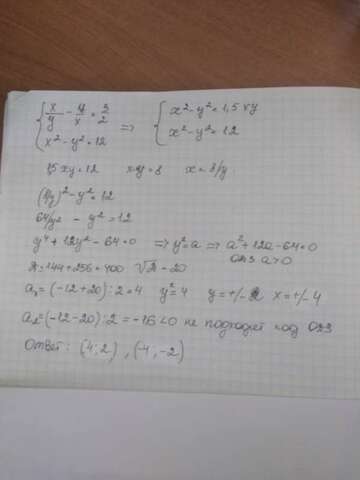 { x/y - y/x = 3/2 => { x² - y² = 1,5 xy
x² - y² = 12 x² - y² = 12
1,5 xy = 12 xy = 8 x = 8/y
(8/y)² - y² = 12
64/y² - y² = 12
y⁴ + 12y² - 64 = 0 => y² = a => a² + 12a - 64 = 0
ОДЗ a > 0
D = 144 + 256 = 400 √D = 20
a₁ = (-12 + 20) : 2 = 4 y² = 4 y = +/- 2 x = +/- 4
a₂ = (-12 - 20) : 2 = -16 < 0 не подходит под ОДЗ
Ответ: (4; 2), (-4; -2)